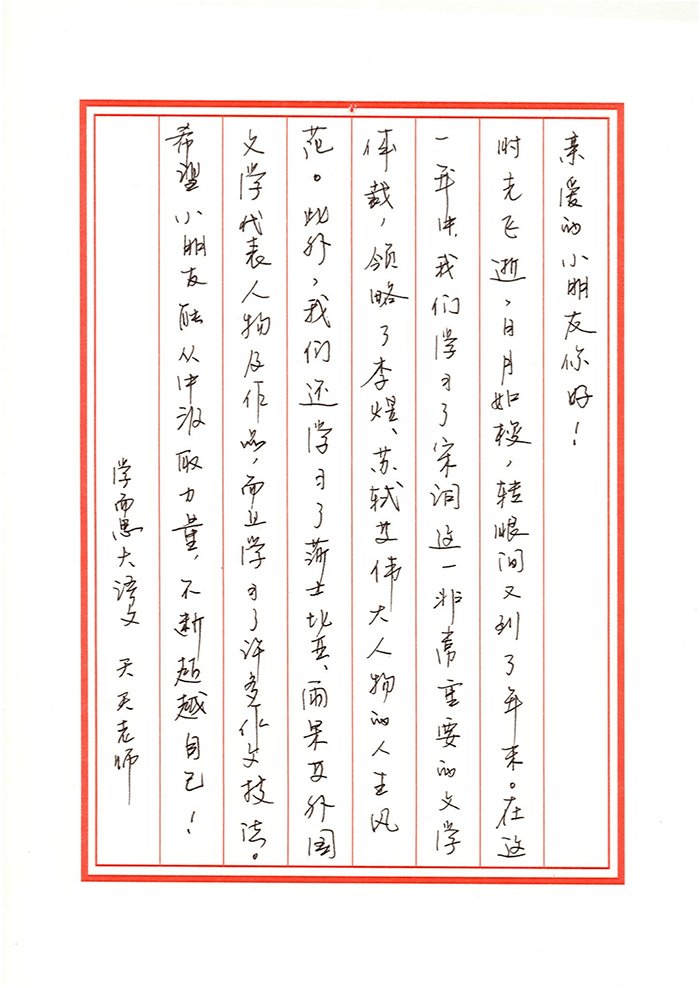 亲爱的小朋友你好！
时光飞逝，日月如梭，转眼间又到了年末。在这
一年中，我们学习了宋词这一非常重要的文学
体裁，领略了李煜、苏轼等伟大人物的人生风
范。此外，我们还学习了莎士比亚、雨果等外国
文学代表人物及作品，而且学习了许多作文技法。
希望小朋友能从中汲取力量，不断超越自己！
学而思大语文 天天老师